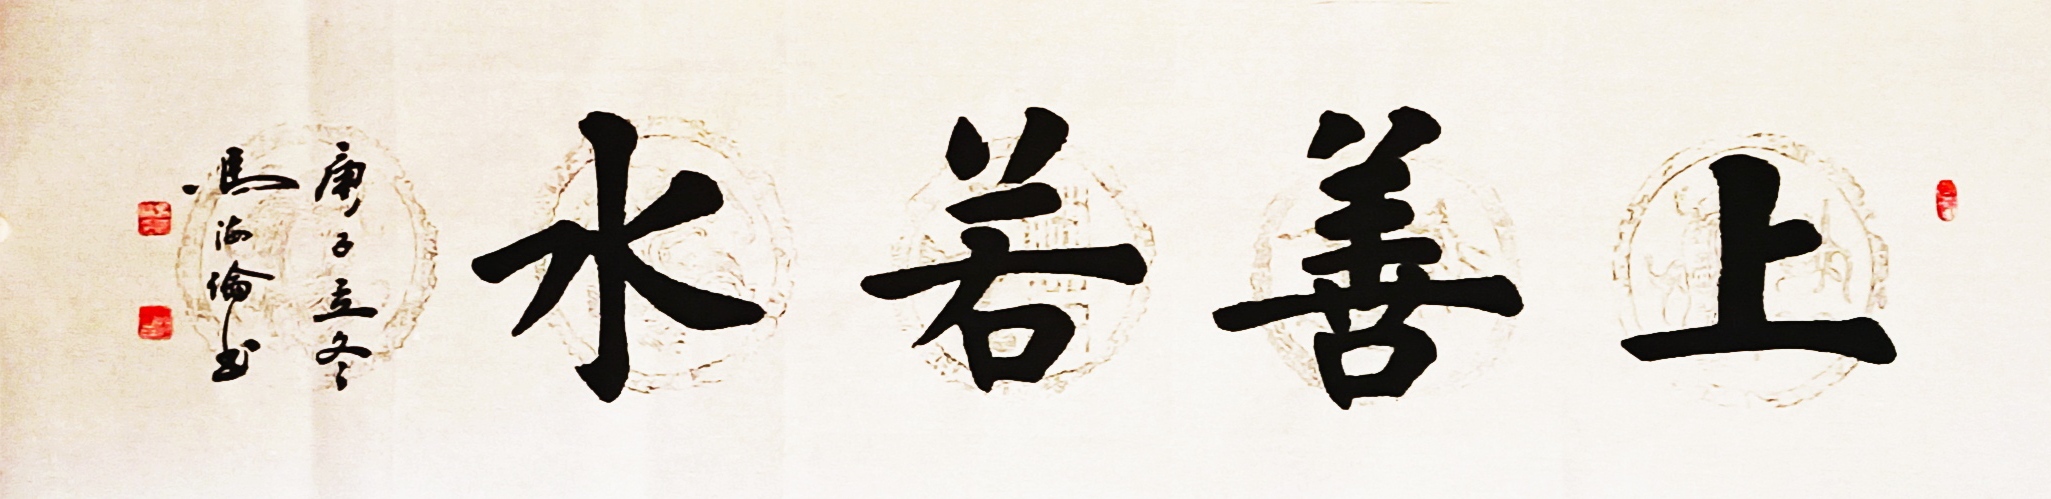 上善若水
庚子立冬
馬海倫书